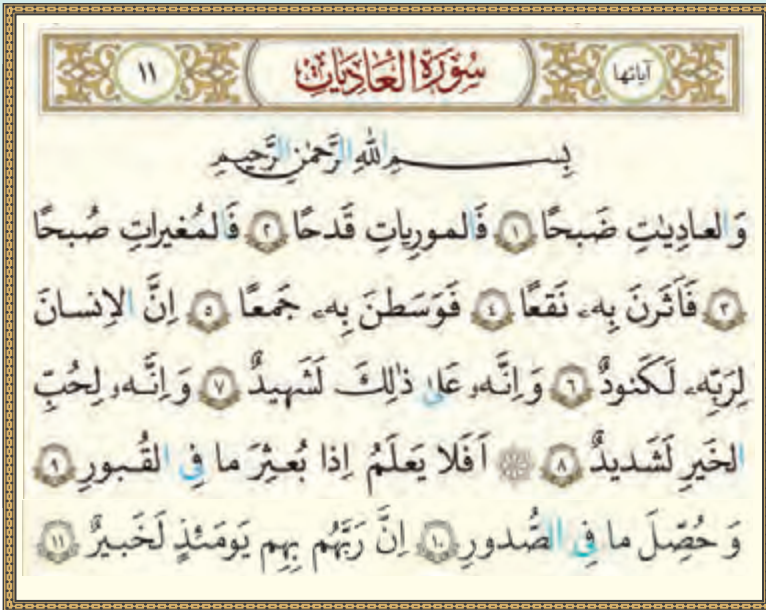 آياتها سورة العاديات ١١
بِسمِ اللهِ الرَّحمٰنِ الرَّحيمِ
وَ العادِيٰتِ ضَبحًا ١ فَالمورِياتِ قَدحًا ٢ فَالمُغيراتِ صُبحًا
٣ فَاَثَرنَ بِهٖ نَقعًا ٤ فَوَسَطنَ بِهٖ جَمعًا ٥ اِنَّ الاِنسانَ
لِرَبِّهٖ لَكَنودٌ ٦ وَ اِنَّهٗ عَلىٰ ذٰلِكَ لَشَهيدٌ ٧ وَ اِنَّهٗ لِحُبِّ
الخَيرِ لَشَديدٌ ٨ ۞ اَفَلا يَعلَمُ اِذا بُعثِرَ ما فِي القُبورِ ٩
وَ حُصِّلَ ما فِي الصُّدورِ ١٠ اِنَّ رَبَّهُم بِهِم يَومَئِذٍ لَخَبيرٌ ١١